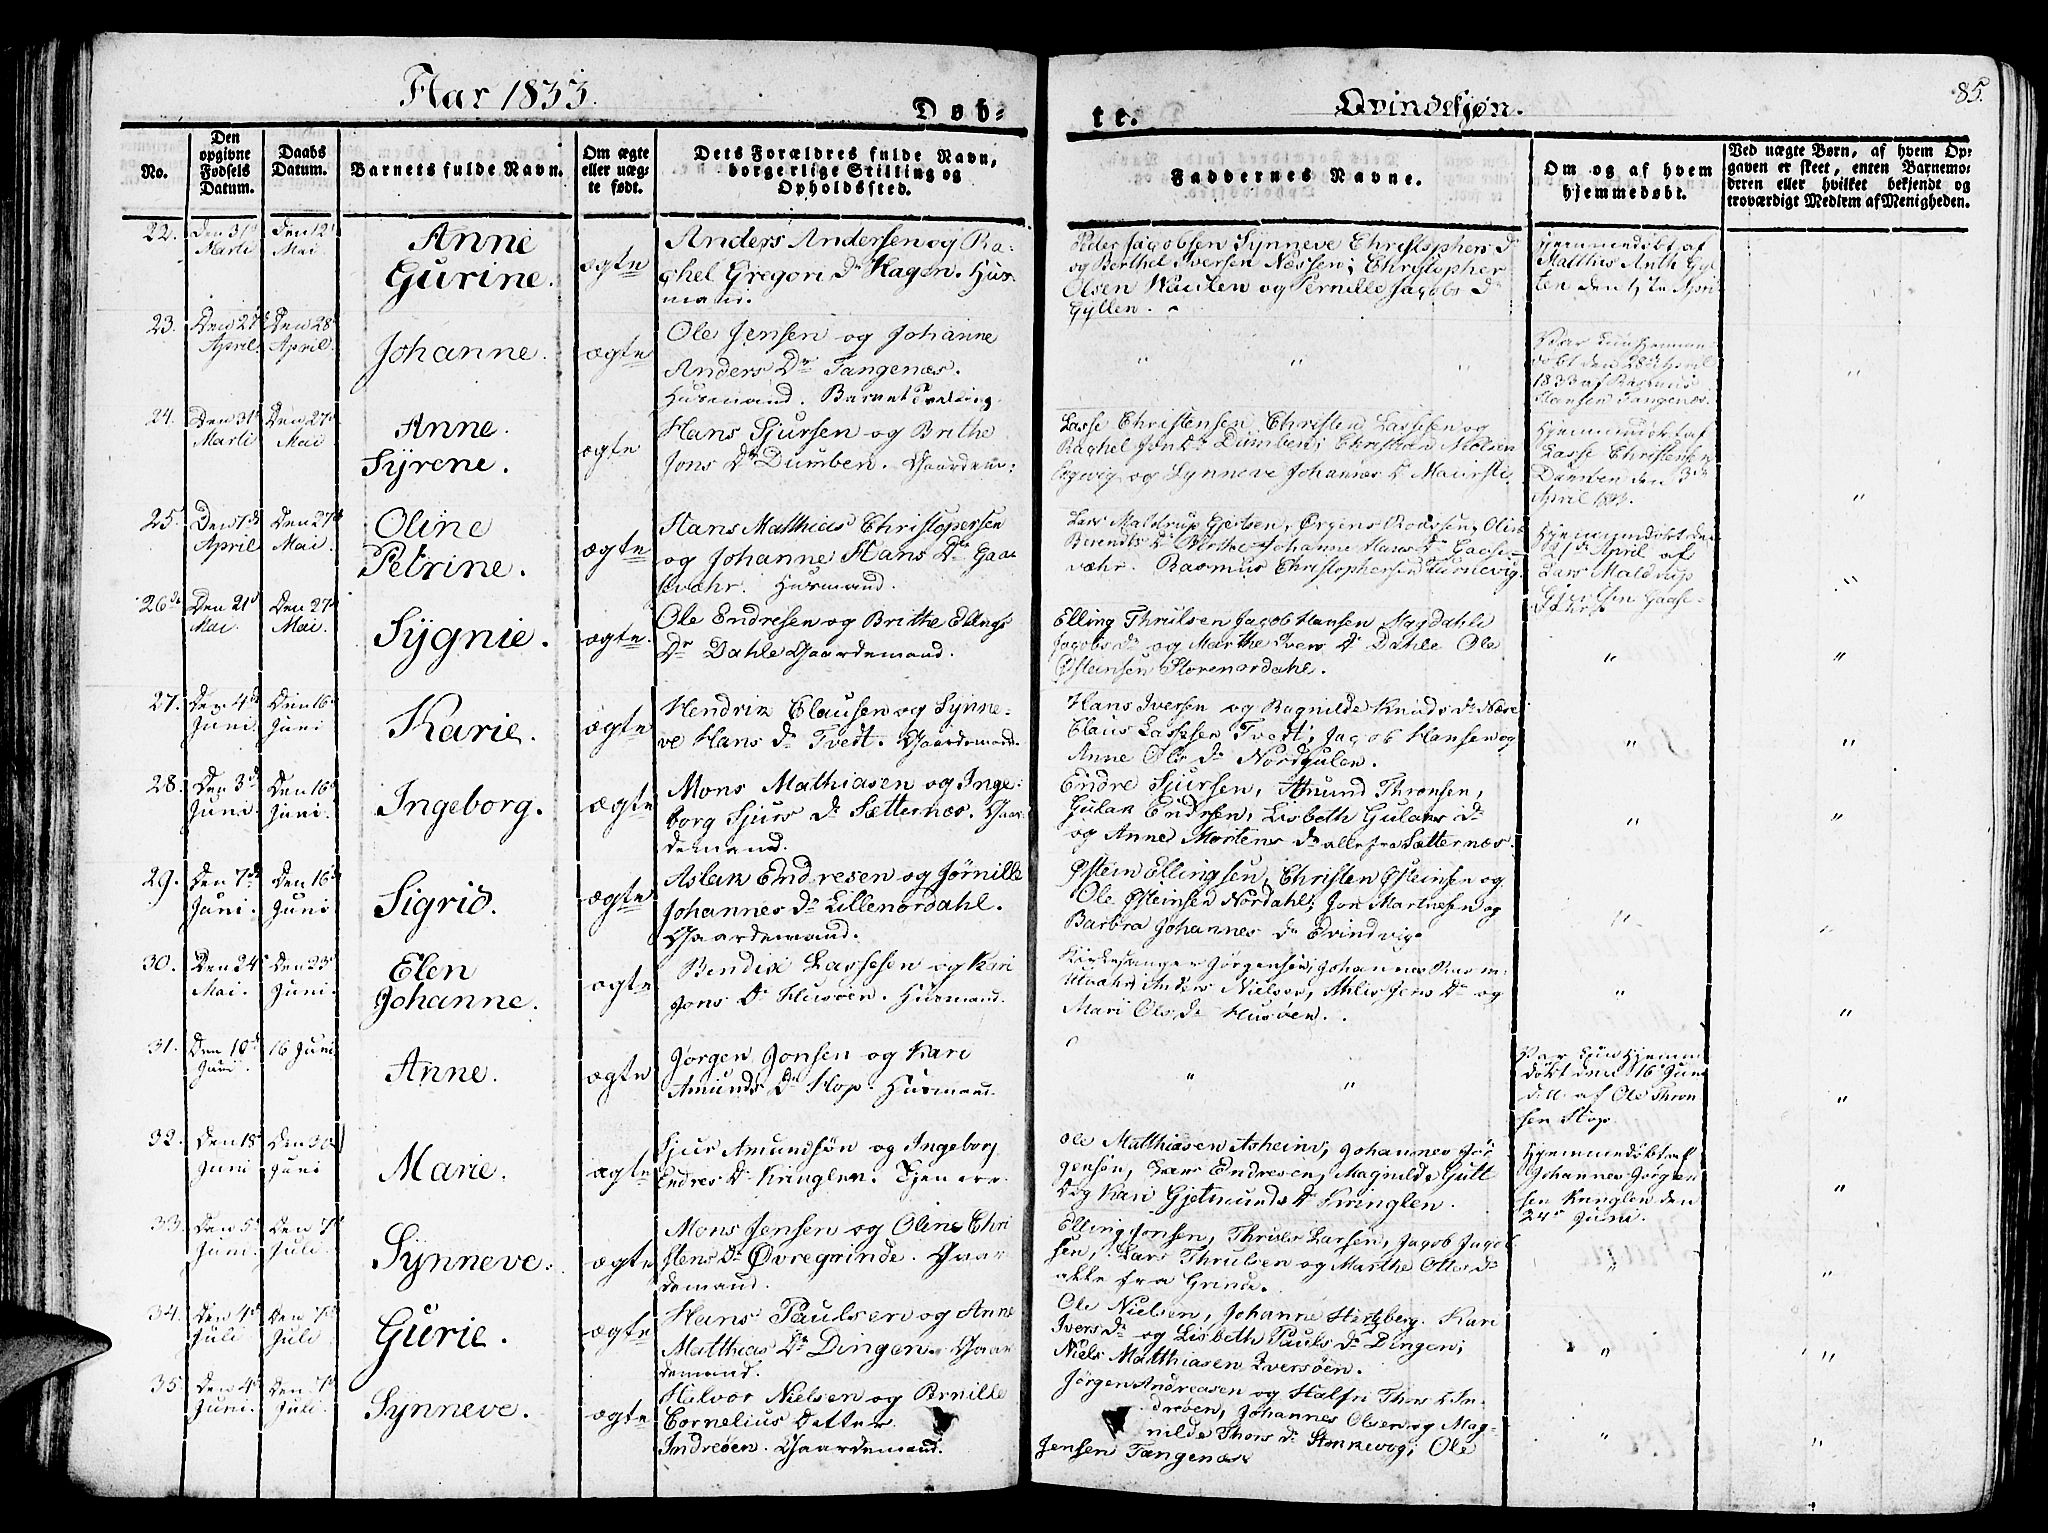 Aar 1833.
Døb-
te.
Qvindekjøn.
85.
No.
Den opgivne Fødsels Datum.
Daabs Datum.
Barnets fulde Navn.
Om ægte eller uægte født.
Dets Forældres fulde Navn, borgerlige Stilling og Opholdsted.
Faddernes Navne.
Om og af hvem hjemmedøbt.
Ved uægte Børn, af hvem Opgaven er skeet, enten Barnemoderen eller hvilket bekjendt og troværdigt Medlem af Menigheden.
22. Den 31 Marti Den 12 Mai
Anne Gurine. ægte
Anders Andersen og Ra-
chel Gregori Dr Hagen. Hus-
mand.
Peder Jacobsen Synneve Christophers Dr
og Berthel Iversen Næssen; Christopher
Olsen og Pernille Jacobs Dr
Gyllen.
Hjemmedøbt af
Matthis Anth Gyl-
ten den April
23. Den 27 April. Den 28 April.
Johanne. ægte
Ole Jensen og Johanne
Anders Dr Tangenæs.
Husmand. Barnet Tvelling.
" " "
Var kun hjemme-
døbt den 28de April
1833 af Rasmus
Hansen Tangenæs.
"
24. Den 31 Marti Den 27 Mai
Anne Syrene. ægte
Hans Sjursen og Brithe
Jons Dr Dumben. Gaardem:
Lasse Christensen, Christen Lassesen og
Raghel Jon Dr Dumben; Christen Nielsen
og Synneve Johannes Dr
Hjemmedøbt af
Lasse Christensen
Dumben den 3de
April
"
25. Den 1 April Den 27 Mai.
Oline Petrine. ægte
Hans Matthias Christopersen
og Johanne Hans Dr Gaa-
sevæhr. Husmand.
Lars Maldrup Gjertsen, Ørgens Oline
Berendts Dr Johanne Hans Dr Gaase-
væhr. Rasmus Christophersen
Hjemmedøbt den
21de April af
Lars Maldrup
Gjertsen Gaase-
væhr
"
26de Den 21d Mai. Den 27 Mai.
Sygnie. ægte.
Ole Endresen og Brithe Ellings
Dr Dahle Gaardemand.
Elling Thrulsen Jacob Hansen Magdahle
Jacobs Dr og Marthe Ivers Dr Dahle Ole
Østeinsen Storenordahl.
" "
27. Den 4de Juni. Den 16 Juni
Karie. ægte
Hendrik Clausen og Synne-
ve Hans Dr Tvedt. Gaardemand.
Hans Iversen og Ragnilde Knuds Dr Næse
Claus Lassesen Tvedt; Jacob Hansen og
Anne Ols Dr Nordgulen.
" "
28. Den 3d Juni. Den 16 Juni.
Ingeborg. ægte
Mons Mathiasen og Inge-
borg Sjurs Dr Sætternæs. Gaar-
demand.
Endre Sjursen, Amund Thronsen,
Gulak Endresen, Lisbeth Gulaks Dr
og Anne Mortens Dr alle fra Sætternæs.
" "
29. Den 7de Juni. Den 16 Juni
Sigrid. ægte
Aslak Endresen og Jørnille
Johannes Dr Lillenordahl.
Gaardemand.
Østein Ellingsen, Christen Østeinsen og
Ole Østeinsen Nordahl; Jon Martnesen og
Barbra Johannes Dr Evindvig.
" "
30. Den 24 Mai. Den 23 Juni.
Elen Johanne. ægte
Bendix Lassesen og Kari
Jons Dr Husøen. Husmand.
Kirkesanger Jørgensen, Johannes
Anders Nielsen, Ahlis Jens Dr og
Mari Ols Dr Husøen.
" "
31. Den 10d Juni. 16 Juni
Anne. ægte
Jørgen Jonsen og Kari
Amunds Dr Hop. Husmand.
" "
Var kun hjemme-
døbt den 16 Juni
af Ole Thron-
sen Hop.
"
32. Den 18 Juni Den 30 Juni
Marie. ægte
Sjur Amundsøn og Ingeborg
Endres Dr Kringlen. Tjenere
Ole Matthiasen Asheim, Johannes Jør-
gensøn, Lars Endresen, Magnilde Gutt
og Kari Gjetmunds Dr Kringlen.
Hjemmedøbt af
Johannes Jørgen-
sen Kringlen den
24de Juni.
"
33. Den 5 Juni. Den 7 Juli.
Synneve. ægte
Mons Jensen og Oline Chri-
stens Dr Øvregrinde. Gaar-
demand.
Elling Jonsen, Thrules Larsen, Jacob Jacob-
sen, Lars Thrulsen og Marthe Ottes Dr
alle fra Grinde.
" "
34. Den 4 Juli Den 7 Juli
Gurie. ægte
Hans Paulsen og Anne
Matthias Dr Dingen. Gaar-
demand.
Ole Nielsen, Johanne Hertzberg. Kari
Ivers Dr og Lisbeth Pauls Dr Dingen;
Niels Matthiasen Iversøen.
" "
35. Den 4 Juni. Den 7 Juli.
Synneve. ægte
Halvor Nielsen og Pernille
Cornelius Datter
Indreøen. Gaardemand.
Jørgen Andreasen og Halfri Thors Dr In-
dreøen, Johannes Olsen og Mag-
nilde Thors Dr Stennevog; Ole
Jensen Tangenæs
" "